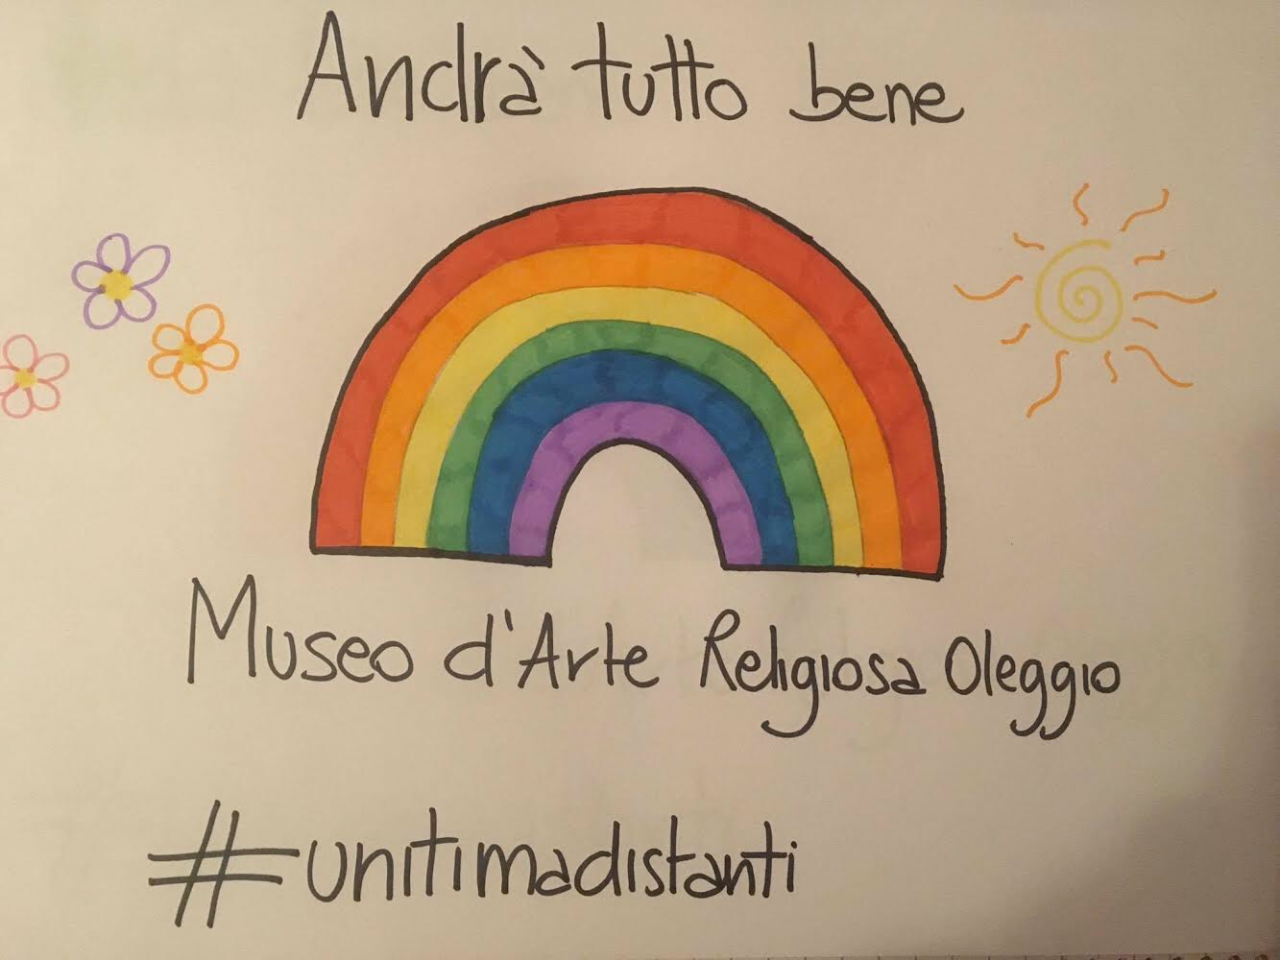 Andrà tutto bene
Museo d'Arte Religiosa Oleggio
#unitimadistanti